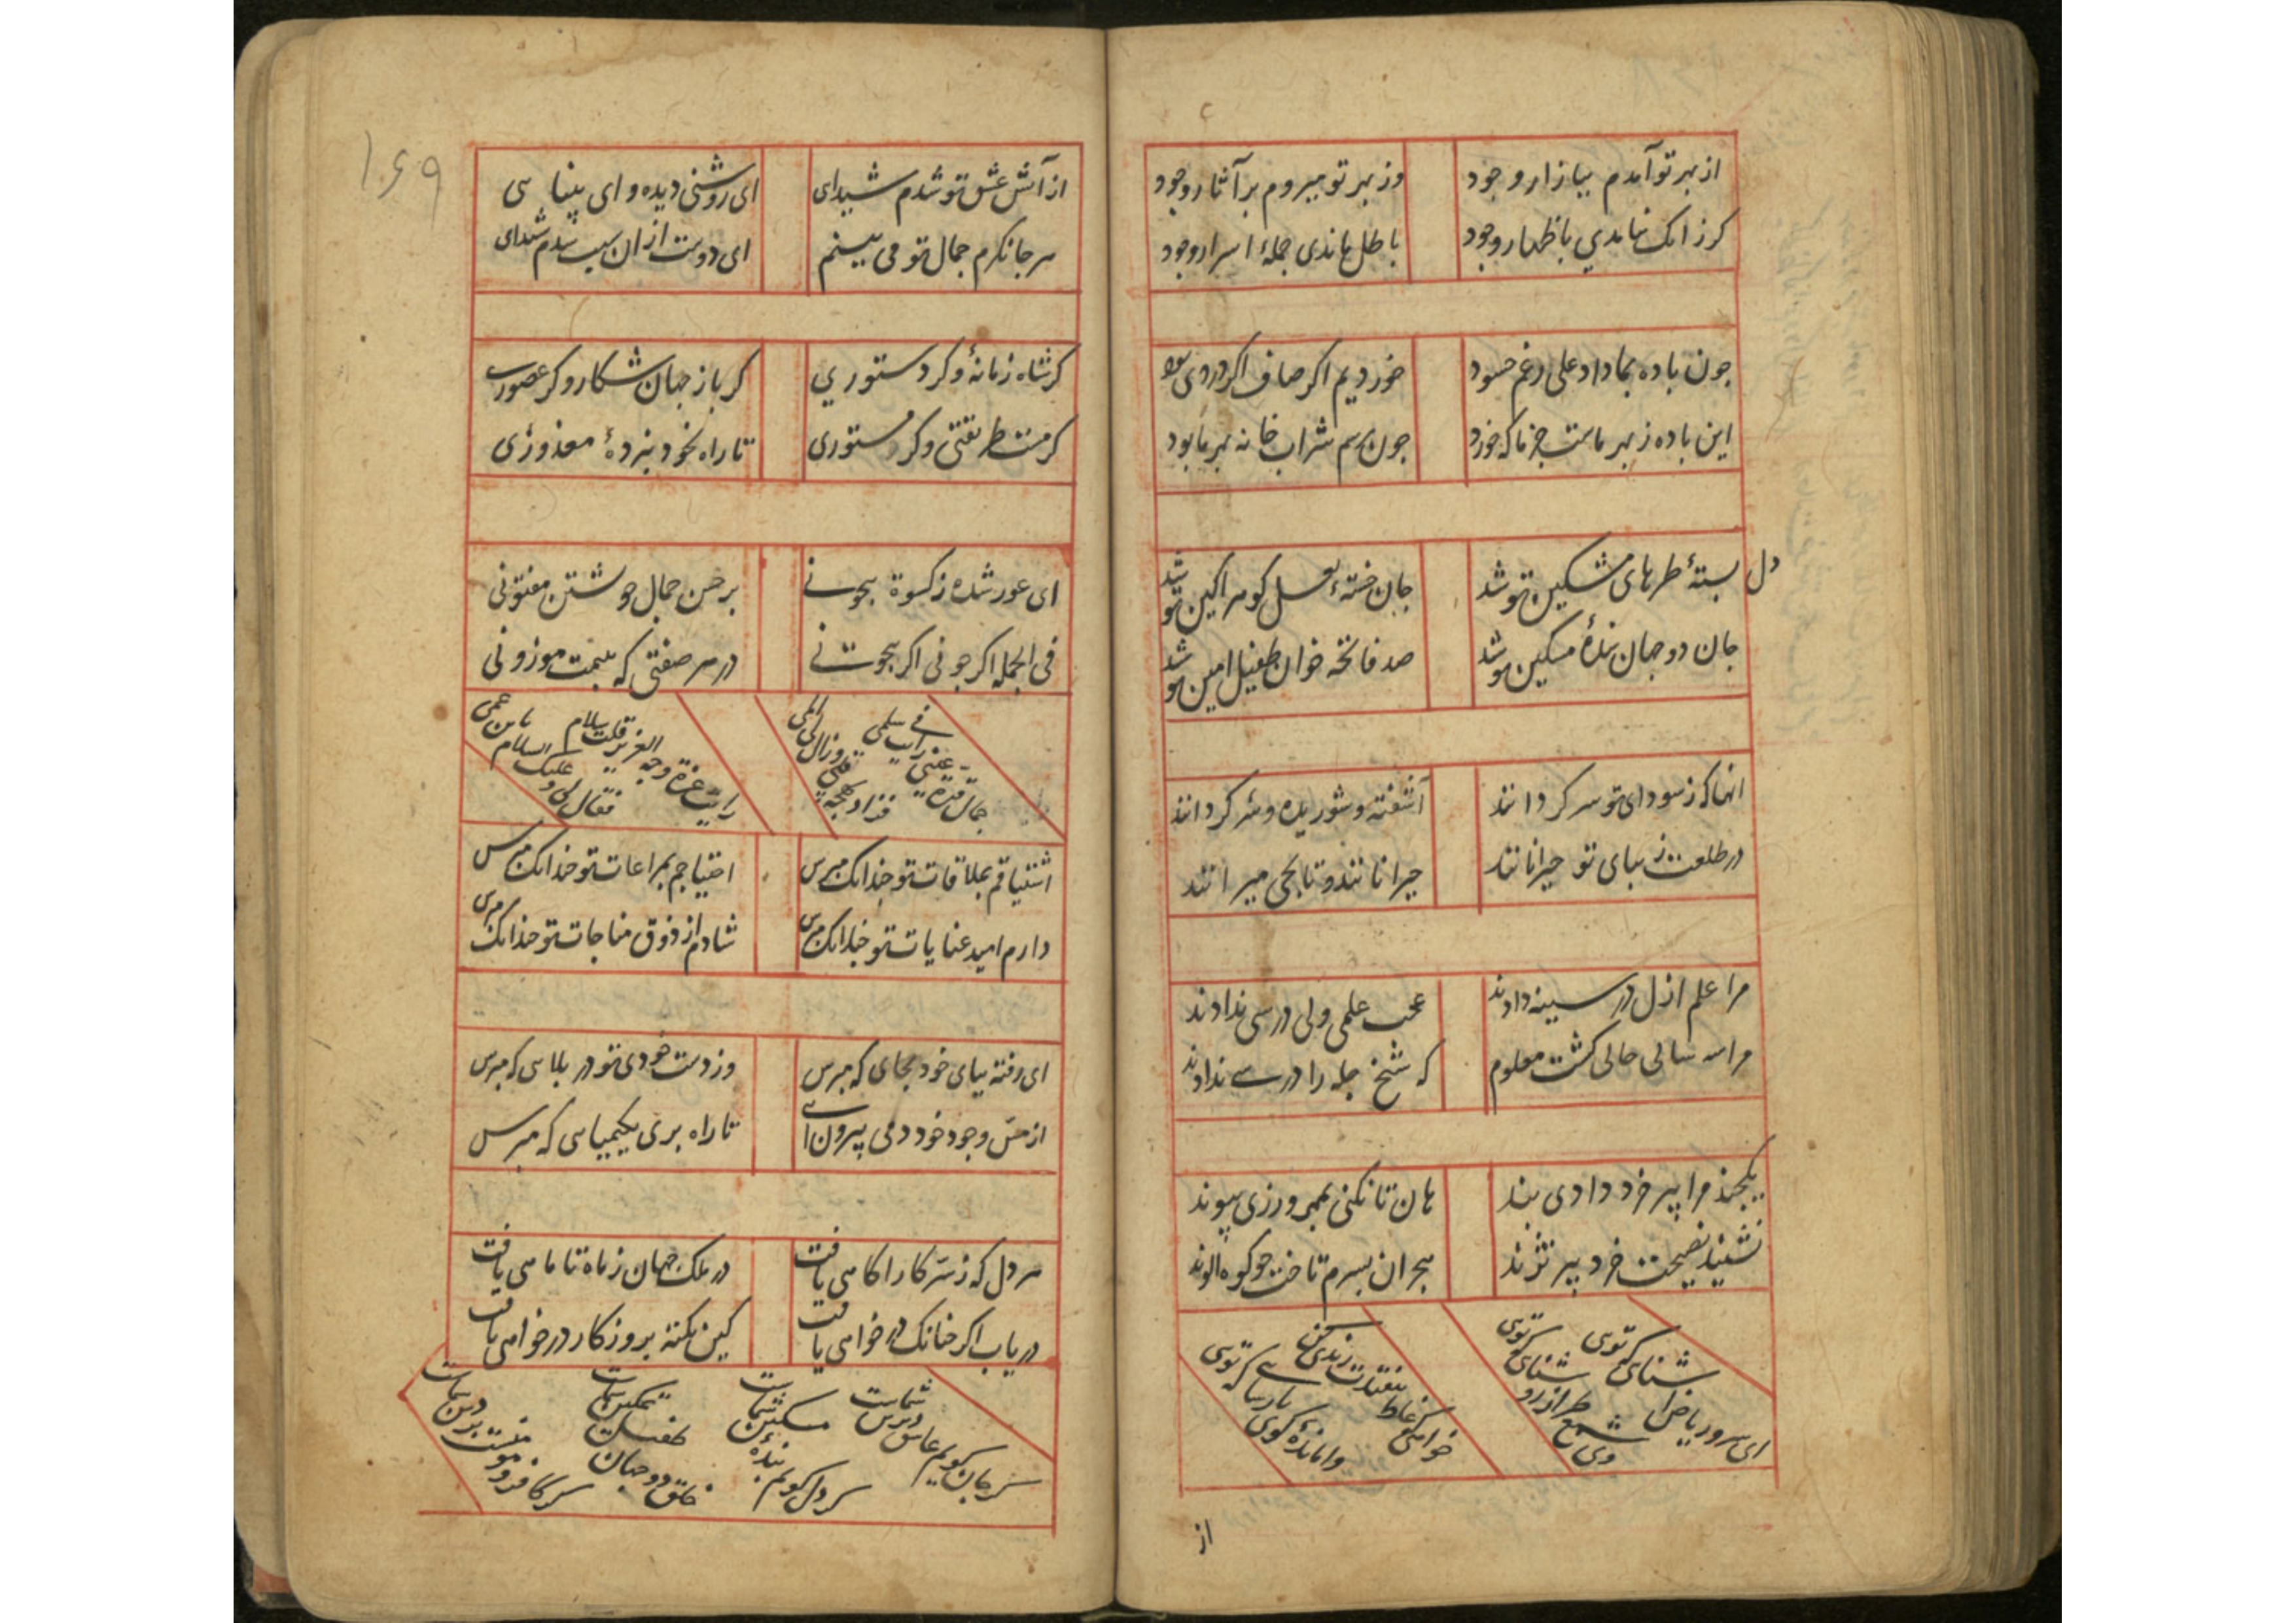 از بهر تو آمدم ببازار وجود
وز بهر تو میروم بر آثار وجود
کر زانک نیامدی باظهار وجود
باطل ماندی جملهٔ اسرار وجود
جون باده بما داد علی رغم حسود
خوردیم اکر صاف اکر دردی بود
این باده ز بهر ماست جز ما که خورد
جون رسم شراب خانه بهر ما بود
دل بستهٔ طرهای مشکین تو شد
جان خستهٔ لعل کوهر اکین تو شد
جان دو جهان بندهٔ مسکین تو شد
صد فاتحه خوان طفیل امین تو شد
انها که ز سودای تو سر کردانند
آشفته و شوریده و سر کردانند
در طلعت زیبای تو حیرانانند
حیرانانند و تا بحی میرانند
مرا علم ازل در سینه دادند
عجب علمی ولی درسی ندادند
مرا سه سالی حالی کشت معلوم
که شیخ جله را در سی ندادند
یکجند مرا پیر خرد دادی بند
هان تا نکنی بمهرورزی پیوند
نشنید نصیحت خرد پیر نژند
هجران بسرم تاخت جو کوه الوند
ای سرو ریاض آشنای که توی
وی شمع طراز رو شنای که توی
خوامی که غلط
بارسا که توی
واماندهٔ کوی
از
۱۶۹
از آتش عشق تو شدم شیدای
ای روشنی دیده و ای بینایی
هر جا نکرم جمال تو می بینم
ای دوست از ان سبب شدم شیدای
کر شاه زمانهٔ و کر دستوری
کر باز جهان شکار و کر عصفوری
کر مست طریقتی و کر مستوری
تا راه بخود نبردهٔ معذوری
ای عور شده ز کسوة بیجونی
بر حسن جمال خویشتن مفتونی
فی الجمله اکر جونی اکر بیجونی
در هر صفتی که بینمت موزونی
اشتیاقم بملاقات تو جندانک مپرس
احتیاجم بمراعات تو جندانک مپرس
دارم امید عنایات تو جندانک مپرس
شادم از ذوق مناجات تو جندانک مپرس
ای رفته بپای خود بجای که مپرس
وز دست خودی تو در بلایی که مپرس
از مس وجود خود دمی بیرون آی
تا راه بری بکیمیایی که مپرس
هر دل که ز سر کار اکامی یافت
در ملک جهان ز ماه تا مامی یافت
دریاب اکر جنانک در خوامی یافت
کین نکته بروزکار در خوامی یافت
کر جان کویم عاشق دیرین شماست
کر دل کویم بندهٔ مسکین شماست
خلق دو جهان
کر کافر و مومنست بر دین شماست